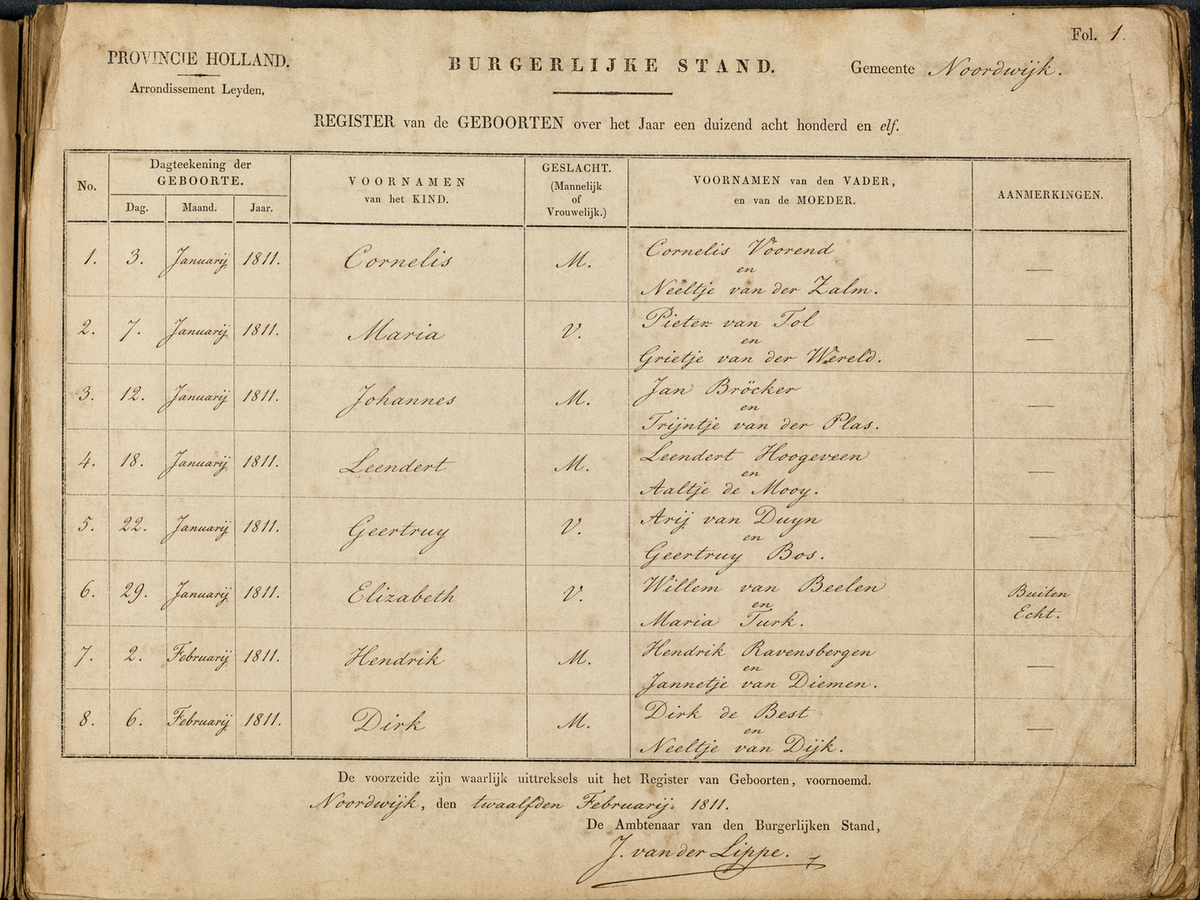 Fol. 1.
PROVINCIE HOLLAND.
Arrondissement Leyden,
BURGERLIJKE STAND.
Gemeente Noordwijk.
REGISTER van de GEBOORTEN over het Jaar een duizend acht honderd en elf.
No.
Dagteekening der
GEBOORTE.
Dag. Maand. Jaar.
VOORNAMEN
van het KIND.
GESLACHT.
(Mannelijk
of
Vrouwelijk.)
VOORNAMEN van den VADER,
en van de MOEDER.
AANMERKINGEN.
1. 3. Januarij 1811. Cornelis M. Cornelis Voorend
en
Neeltje van der Zalm. —
2. 7. Januarij 1811. Maria V. Pieter van Tol
en
Grietje van der Wereld. —
3. 12. Januarij 1811. Johannes M. Jan Bröcker
en
Trijntje van der Plas. —
4. 18. Januarij 1811. Leendert M. Leendert Hoogeveen
en
Aaltje de Mooy. —
5. 22. Januarij 1811. Geertruy V. Arij van Duyn
en
Geertruy Bos. —
6. 29. Januarij 1811. Elizabeth V. Willem van Beelen
en
Maria Turk.
Buiten
Echt.
7. 2. Februarij 1811. Hendrik M. Hendrik Ravensbergen
en
Jannetje van Diemen. —
8. 6. Februarij 1811. Dirk M. Dirk de Best
en
Neeltje van Dijk. —
De voorzeide zijn waarlijk uittreksels uit het Register van Geboorten, voornoemd.
Noordwijk, den twaalfden Februarij 1811.
De Ambtenaar van den Burgerlijken Stand,
J. van der Lippe.